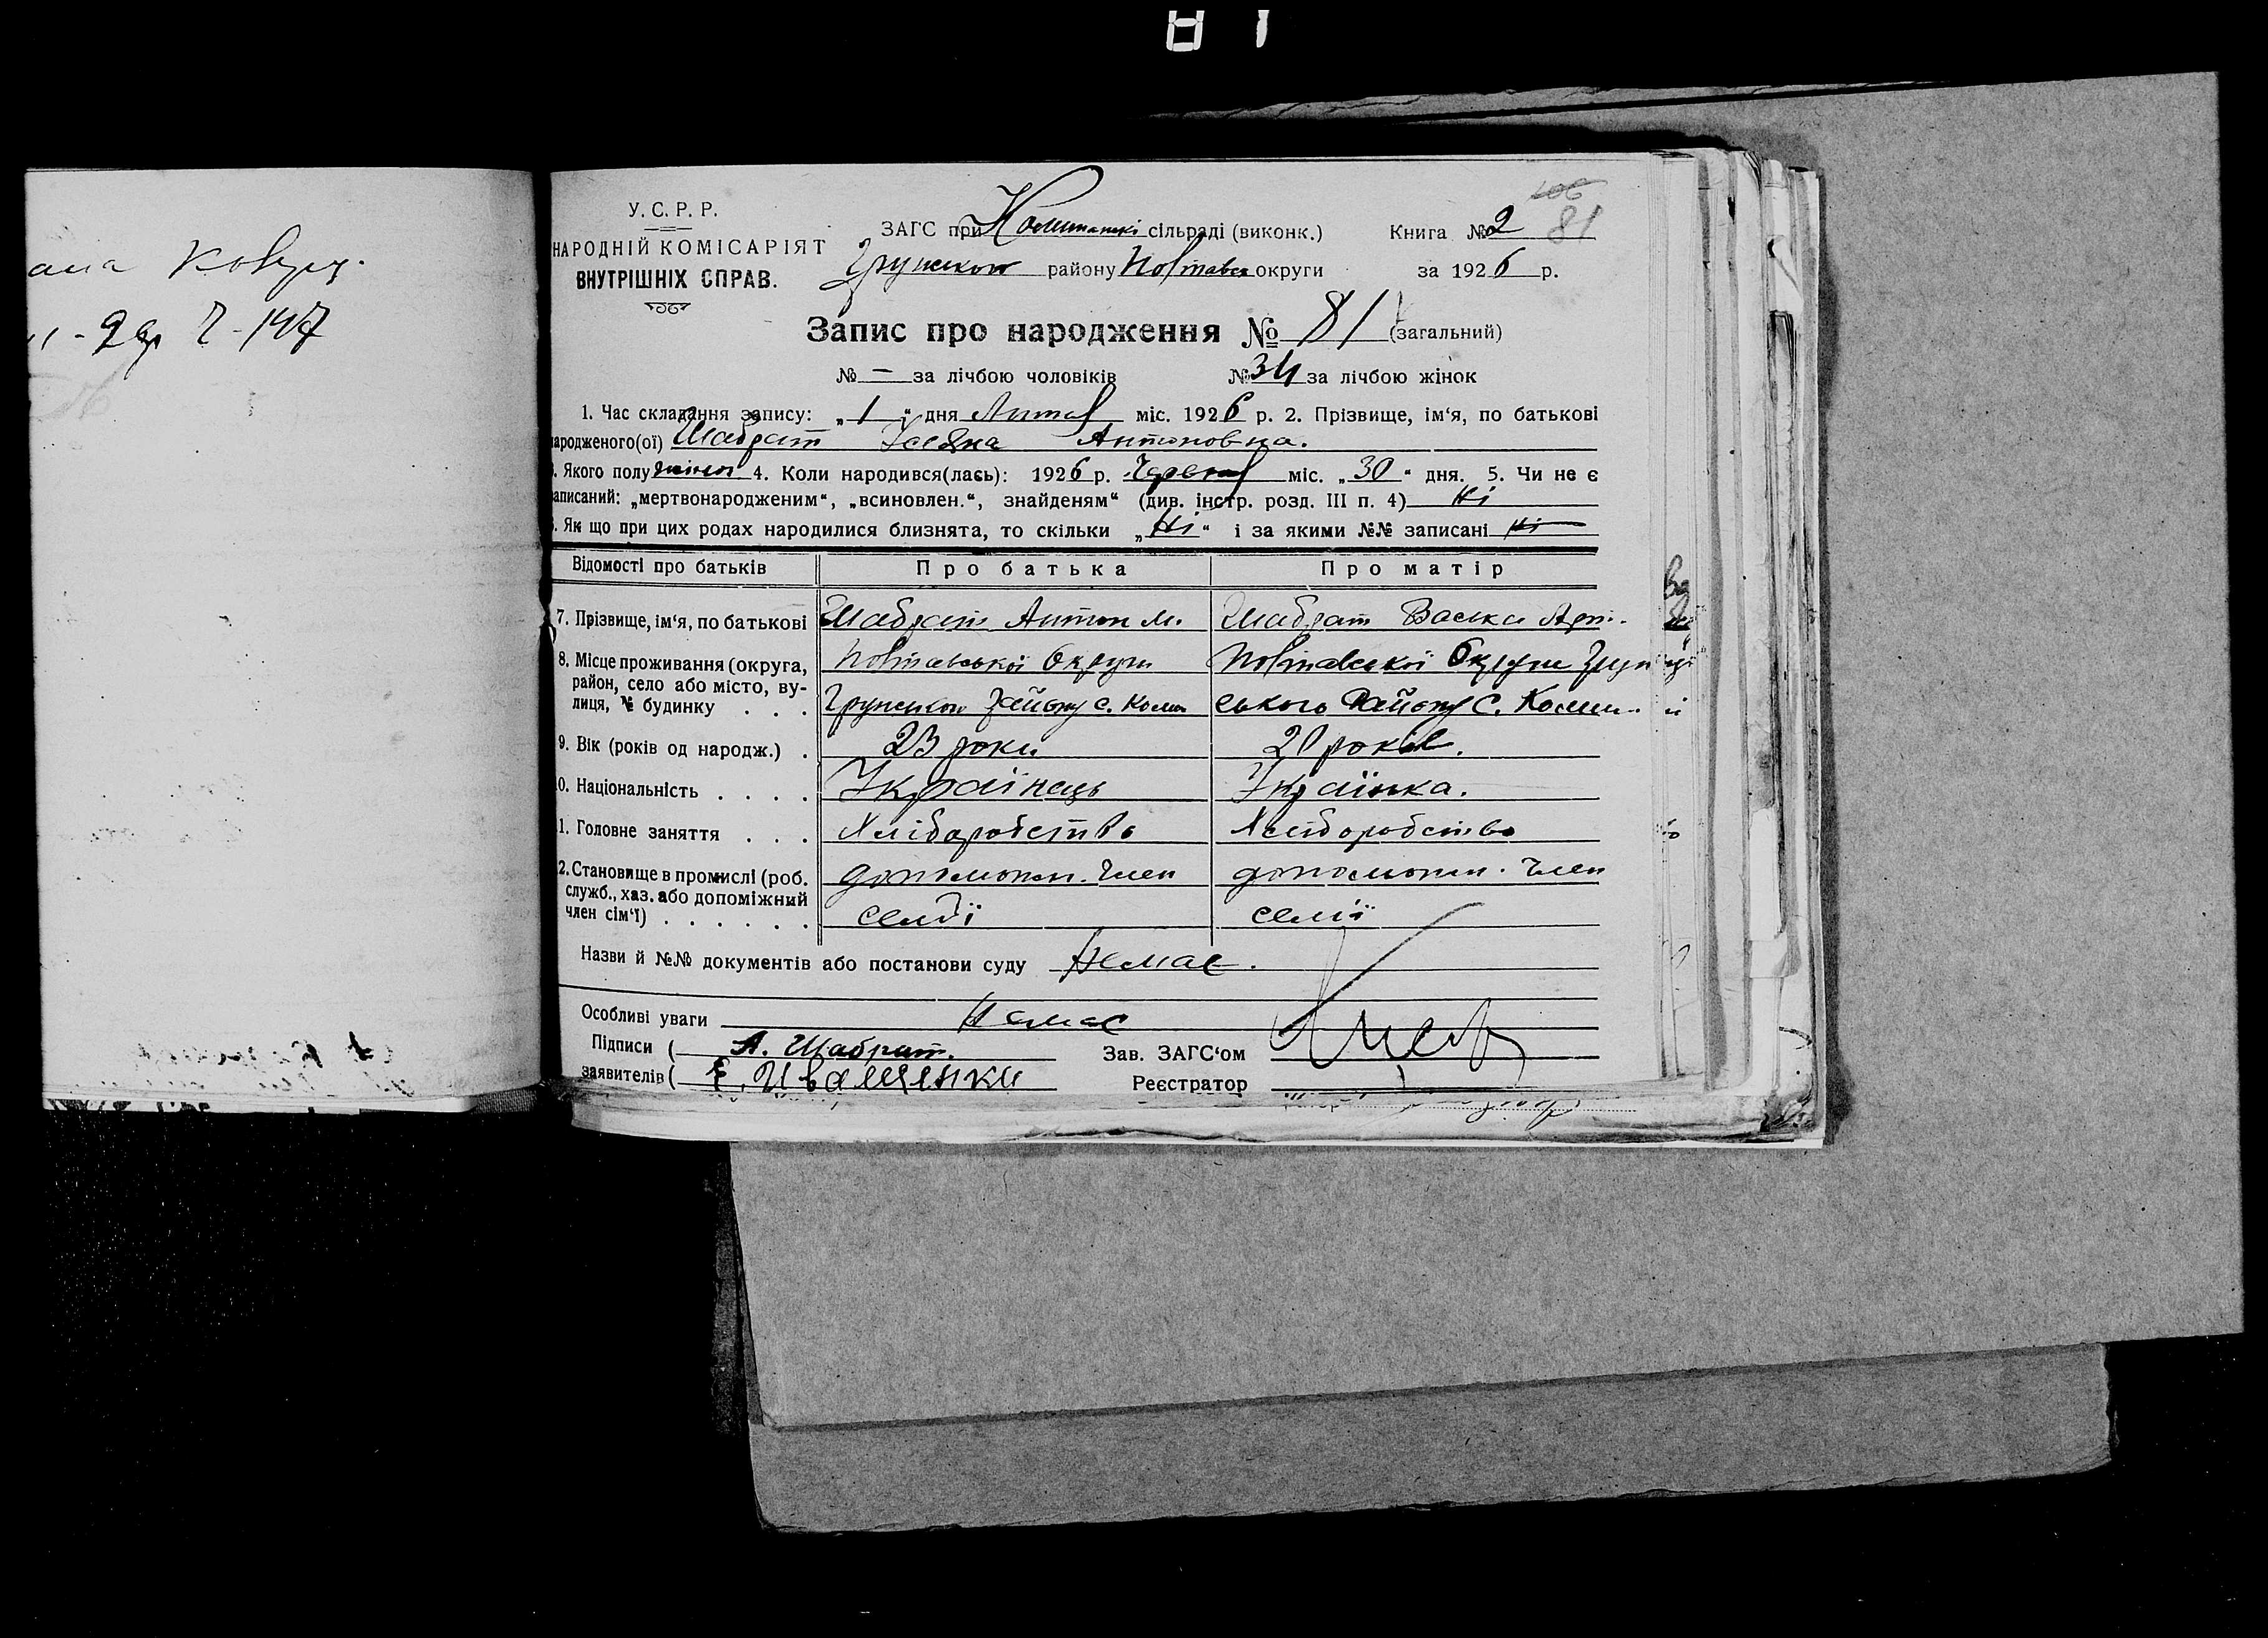 81
ана
2-147
У. С. Р. Р.
НАРОДНІЙ КОМІСАРІЯТ
ВНУТРІШНІХ СПРАВ.
106
81
ЗАГС при сільраді (виконк.) Книга № 2
Грунського району Полтавськ округи за 1926 р.
Запис про народження № 81 (загальний)
№ — за лічбою чоловіків № 34 за лічбою жінок
1. Час складання запису: „1“ дня Липня міс. 1926 р. 2. Прізвище, ім‘я, по батькові
народженого(ої) Шабрат Уляна Антоновна.
3. Якого полу жіноч 4. Коли народився(лась): 1926 р. Червня міс. „30“ дня. 5. Чи не є
записаний: „мертвонародженим“, „всиновлен.“, знайденям“ (див. інстр. розд. III п. 4) Ні
6. Як що при цих родах народилися близнята, то скільки „Ні“ і за якими №№ записані Ні
Відомості про батьків Про батька Про матір
7. Прізвище, ім‘я, по батькові Шабрат Антон М. Шабрат Васка Арт.
8. Місце проживання (округа, Полтавської Округи Полтавської Округи Грун
район, село або місто, ву-
лиця, № будинку . . . Грунського району с. Комиш ського Району С. Комиш.
9. Вік (років од народж.) . 23 роки 20 років.
10. Національність . . . . Українець Українка.
11. Головне заняття . . . Хліборобство Хліборобство
12. Становище в промислі (роб. допоможн. Член допоможн. Член
служб., хаз. або допоміжний
член сім‘ї) . . . . . . семї семії
Назви й №№ документів або постанови суду Немає.
Особливі уваги Немає
Підписи ( А. Шабрат. Зав. ЗАГС‘ом
заявителів ( Реєстратор